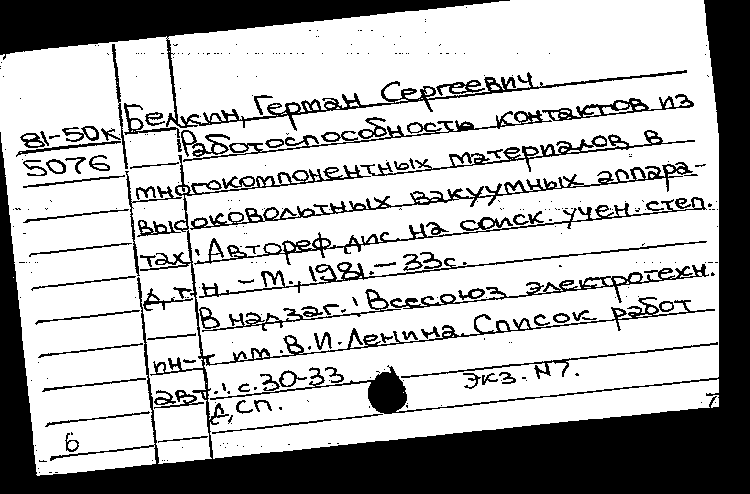 Белкин, Герман Сергеевич.
81-50к
5076
Работоспособность контактов из
многокомпонентных материалов в
высоковольтных вакуумных аппара-
тах: Автореф. дис. на соиск. учен. степ.
д.т.н. - М., 1981. - 33с.
В надзаг.: Всесоюз электротехн.
ин-т им. В.И. Ленина. Список работ
авт.: с. 30-33.
Экз. N7.
Д,сп.
6
7